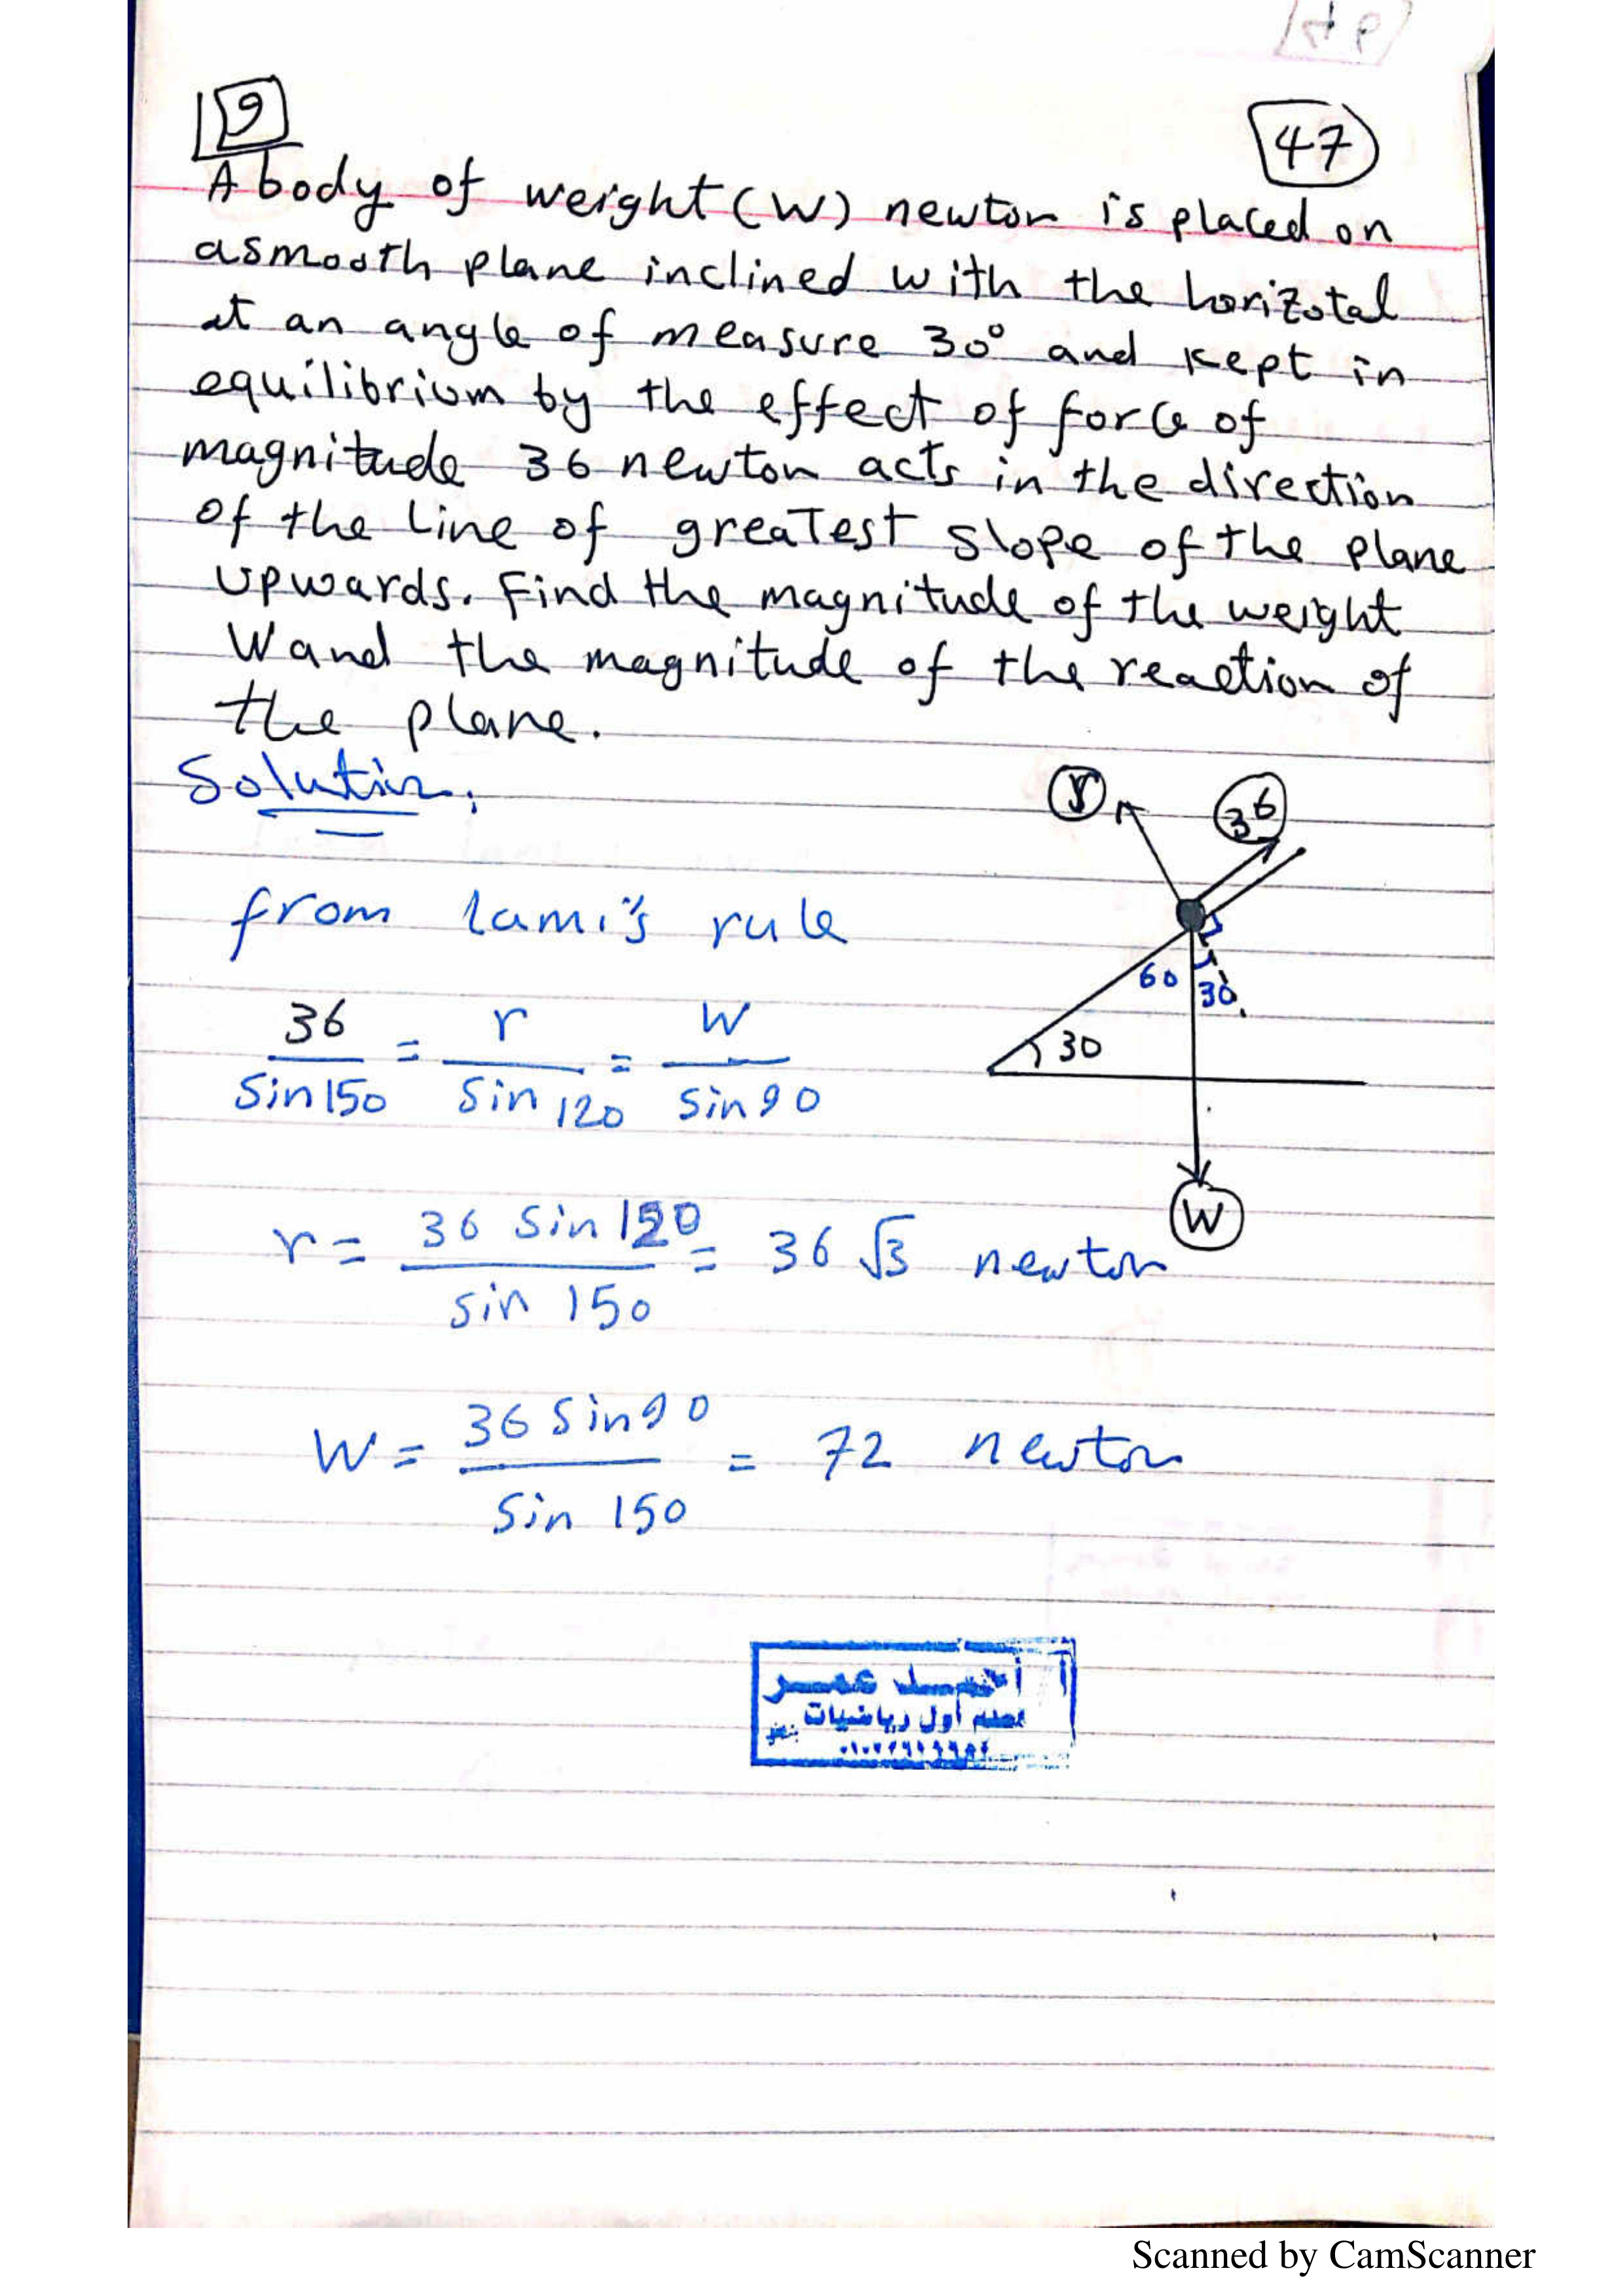 9
47
A body of weight (W) newton is placed on
asmooth plane inclined with the horizotal
at an angle of measure 30° and kept in
equilibrium by the effect of force of
magnitude 36 newton acts in the direction
of the Line of greatest slope of the plane
upwards. Find the magnitude of the weight
W and the magnitude of the reaction of
the plane.
Solution:
r 36
from lami's rule
60 30
30
36/Sin150 = r/Sin120 = W/Sin90
W
r = 36 Sin120/Sin 150 = 36 √3 newton
W = 36 Sin90/Sin 150 = 72 newton
أ أحمد عمر
معلم أول رياضيات
Scanned by CamScanner